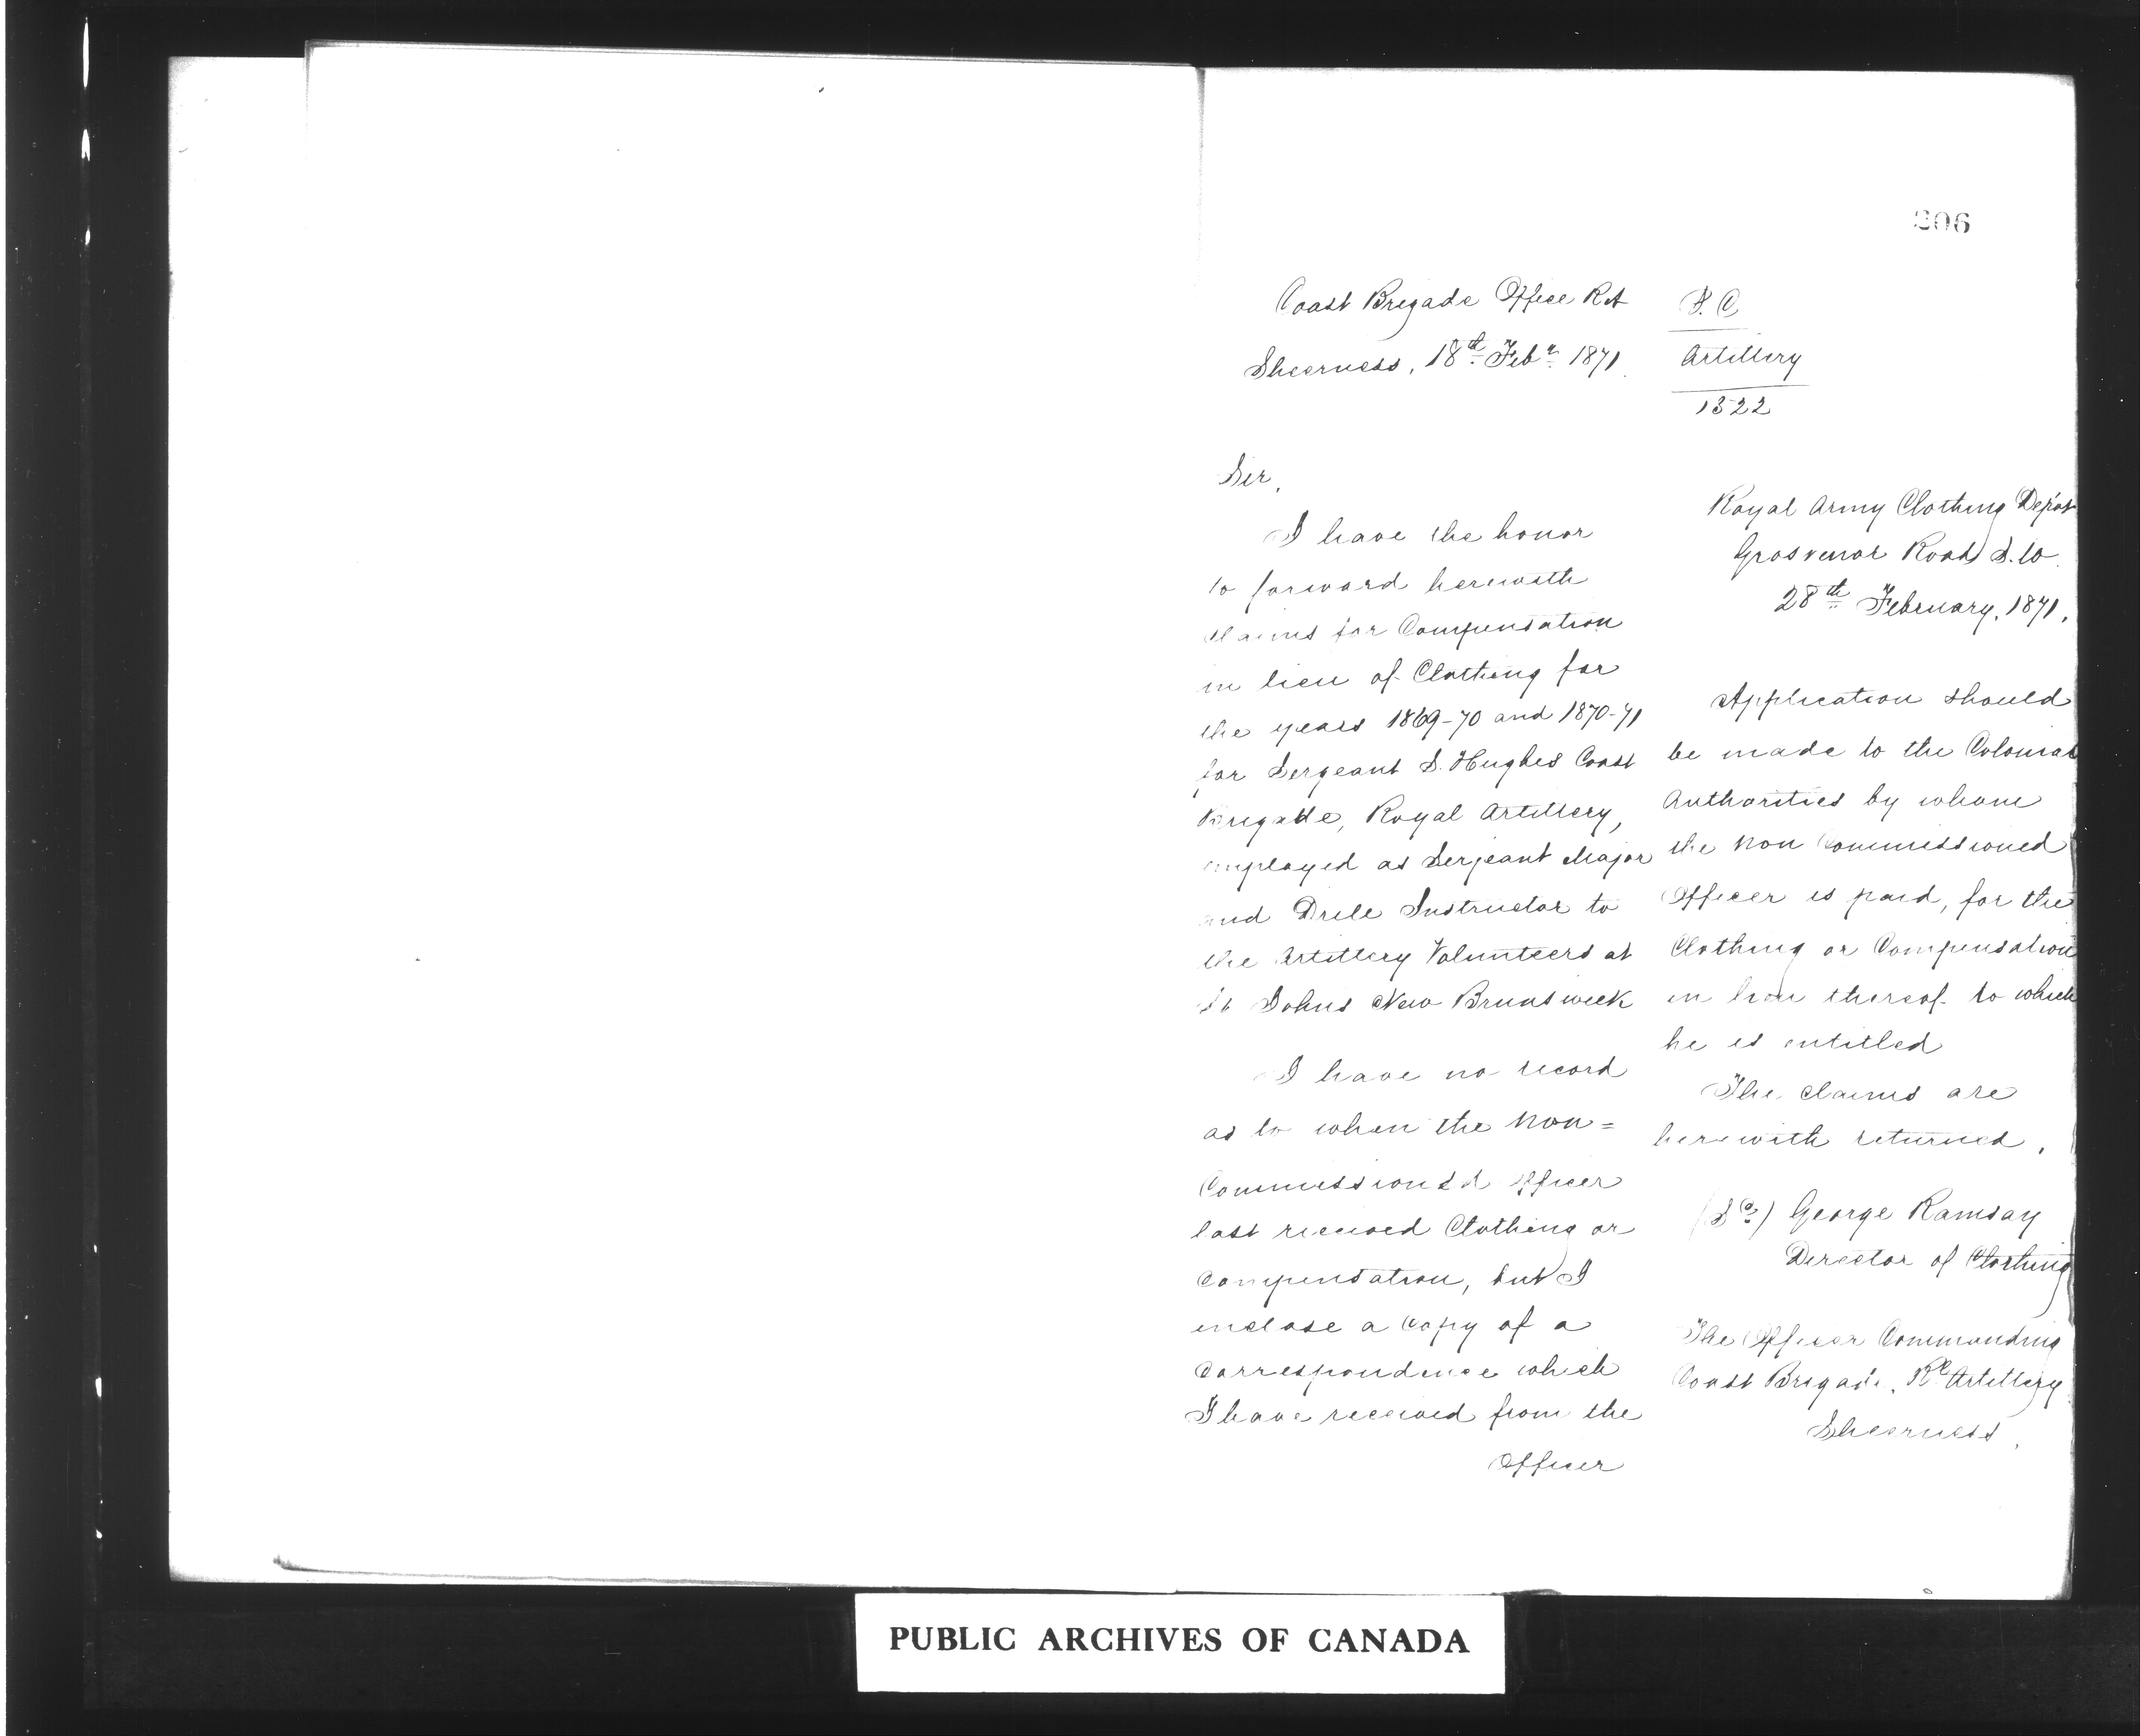 206
Coast Brigade Office RA
Sheerness, 18th Feby 1871
Sir,
I have the honor
to forward herewith
claims for Compensation
in lieu of Clothing for
the years 1869-70 and 1870-71
for Sergeant S. Hughes Coast
Brigade, Royal Artillery,
employed as Serjeant Major
and Drill Instructor to
the Artillery Volunteers at
St Johns New Brunswick
I have no record
as to when the Non=
Commissioned Officer
last received Clothing or
Compensation, but I
inclose a copy of a
Correspondence which
I have received from the
Officer
Artillery
1322
Royal Army Clothing Depôt
Grosvenor Road S.W.
28th February, 1871,
Application should
be made to the Colonial
Authorities by whom
the Non Commissioned
Officer is paid, for the
Clothing or Compensation
in lieu thereof to which
he is entitled
The claims are
herewith returned,
(Sd) George Ramsay
Director of Clothing
The Officer Commanding
Coast Brigade, Rl Artillery
Sheerness,
PUBLIC ARCHIVES OF CANADA